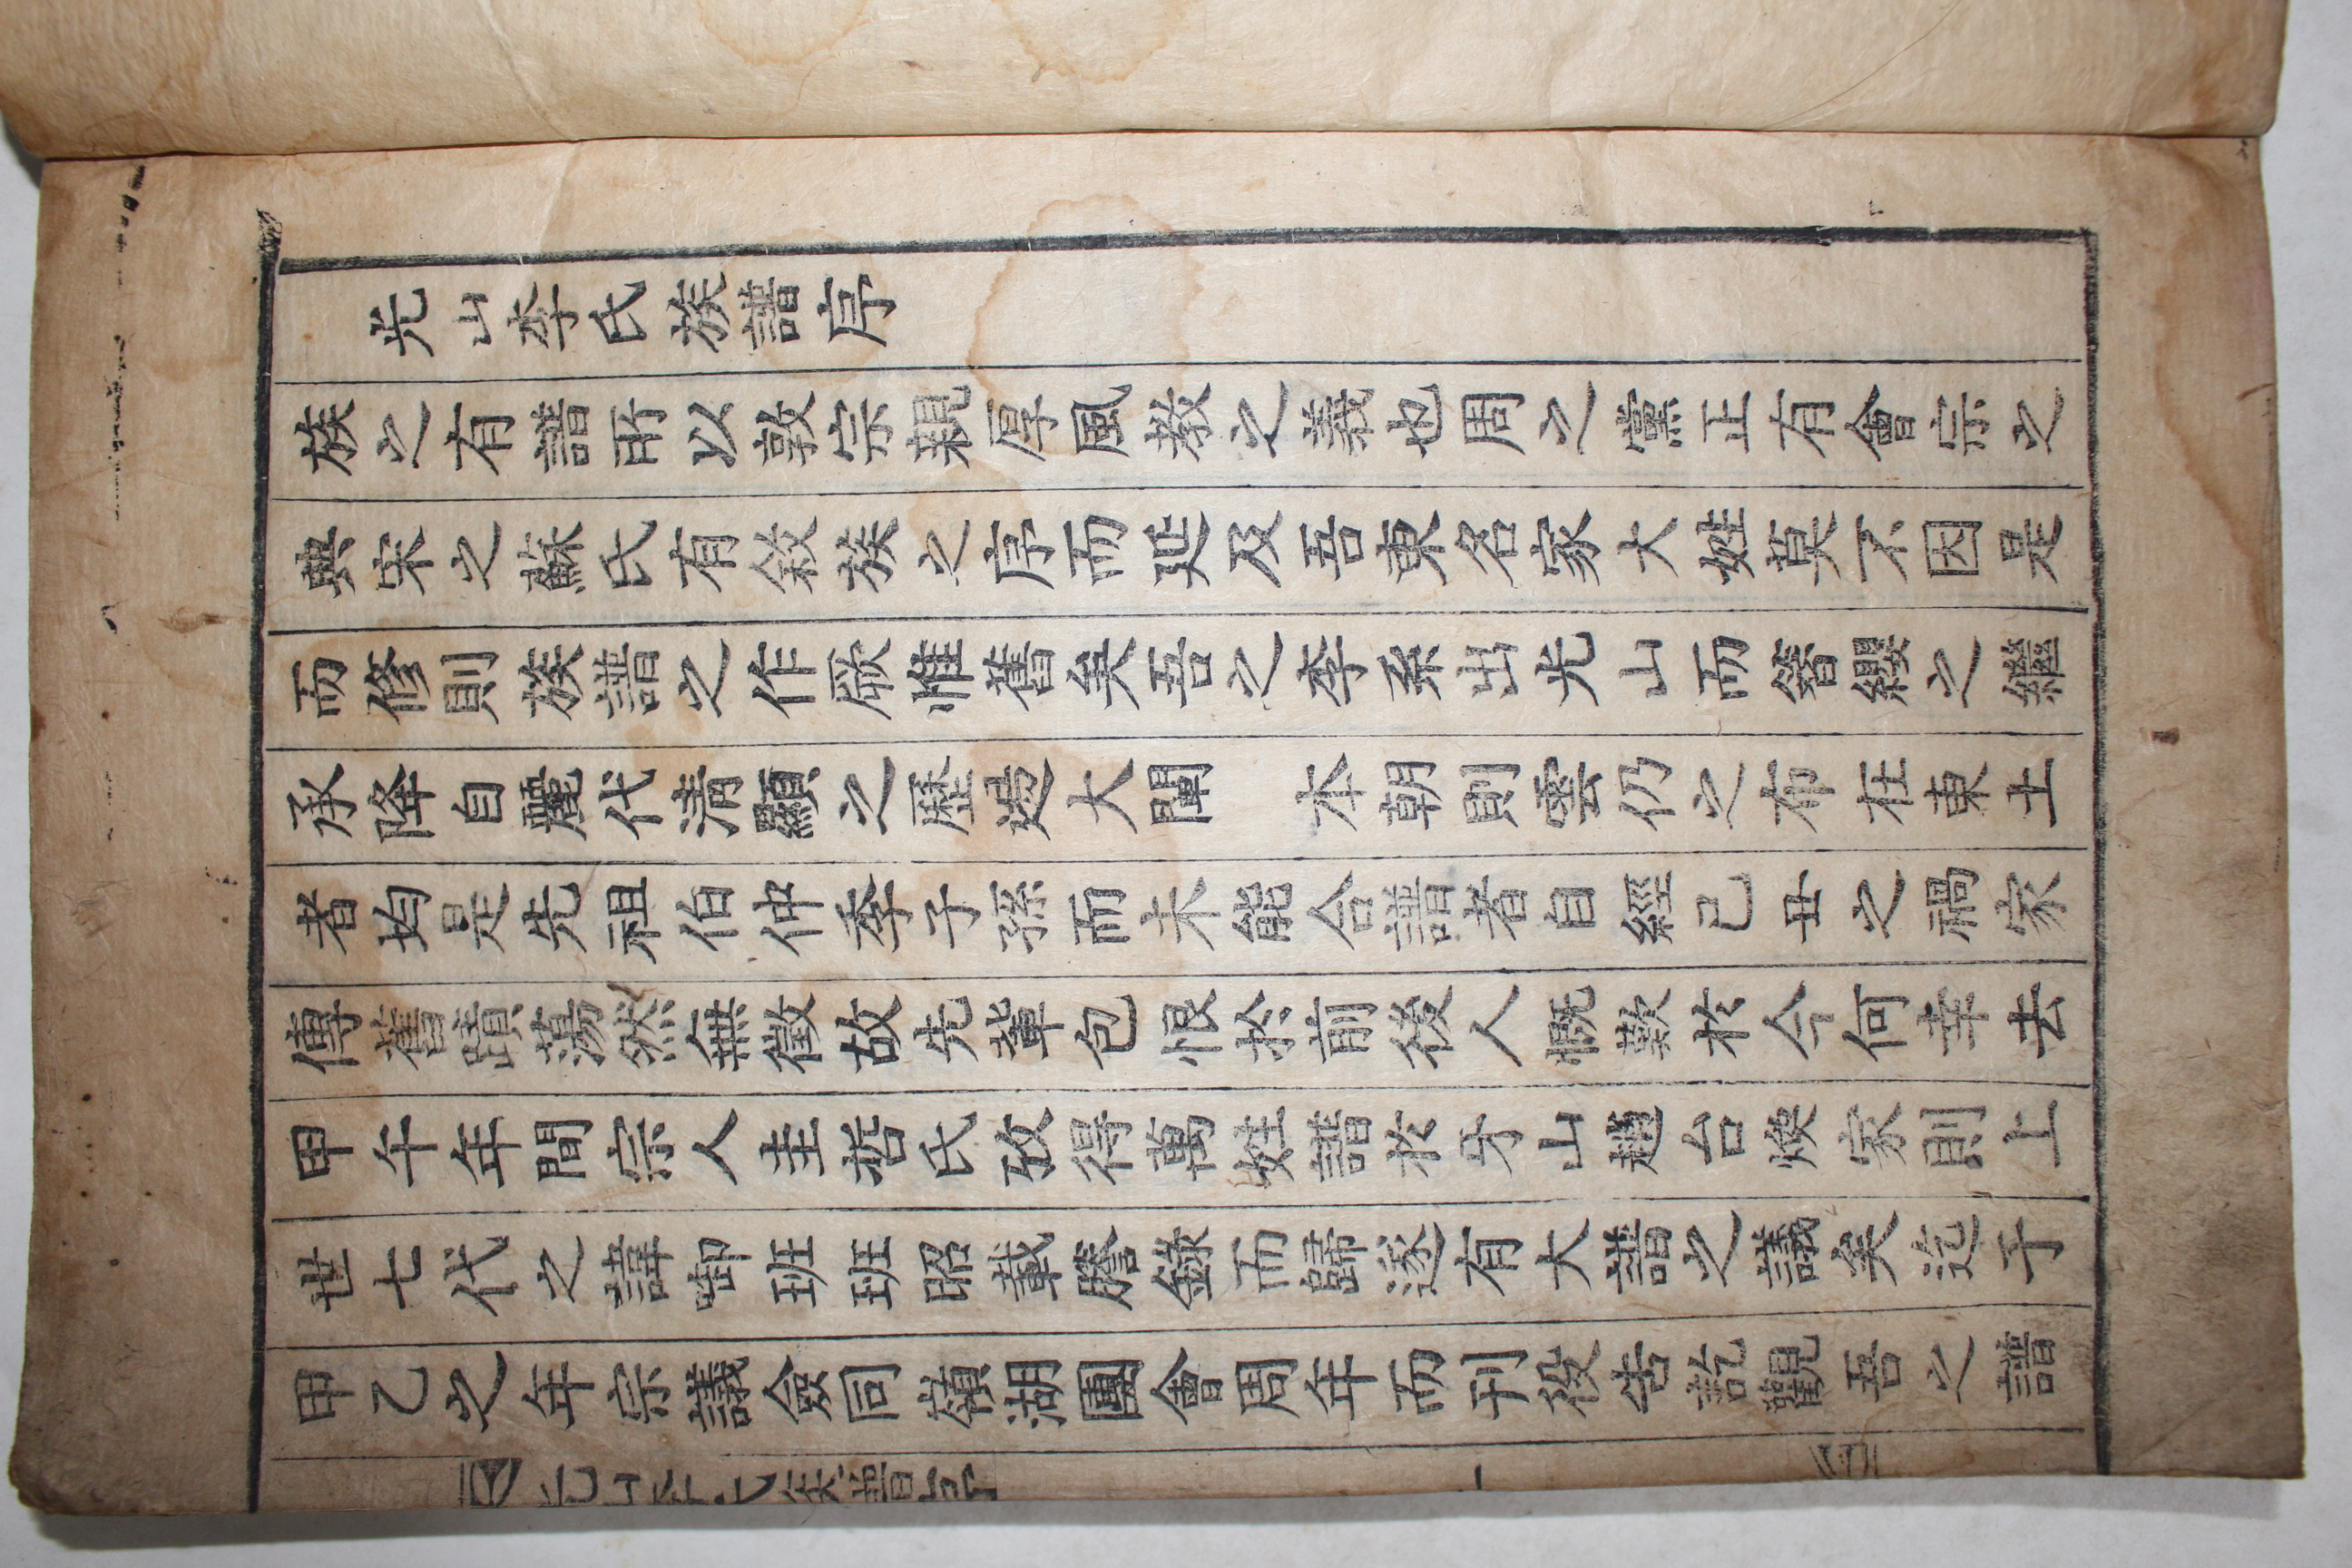 光山李氏族譜序
族之有譜所以敦宗親厚風教之義也周之黨正有會宗之
典宋之蘇氏有敍族之序而延及吾東名家大姓莫不因是
而修則族譜之作厥惟舊矣吾之李系出光山而簪纓之繼
承降自麗代淸顯之歷遠大閘 本朝則雲仍之布在東土
者均是先祖伯仲季子孫而未能合譜者自經己丑之禍家
傳舊蹟蕩然無徵故先輩包恨於前後人慨歎於今何幸去
甲午年間宗人圭哲氏攷得萬姓譜於牙山趙台煥家則上
世七代之諱啣班班昭載謄錄而歸遂有大譜之議矣迄于
甲乙之年宗議僉同嶺湖團會周年而刊役告訖觀吾之譜
光山李氏族譜序 一